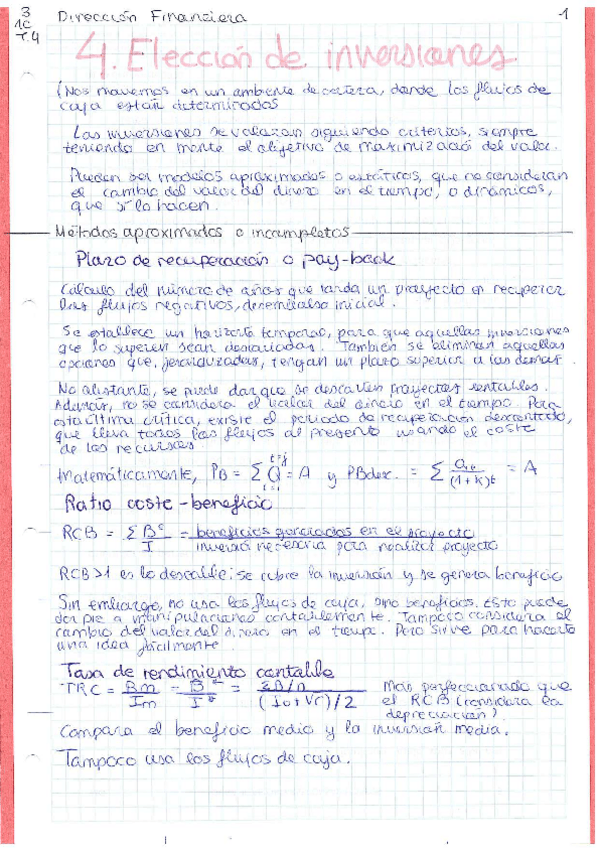 3
1C
T.4
Dirección Financiera
1
4. Elección de inversiones
(Nos movemos en un ambiente de certeza, donde los flujos de
caja están determinados
Las inversiones se valoran siguiendo criterios, siempre
teniendo en mente el objetivo de maximización del valor.
Pueden ser modelos aproximados o estáticos, que no consideran
el cambio del valor del dinero en el tiempo, o dinámicos,
que sí lo hacen.
Métodos aproximados o incompletos
Plazo de recuperación o pay-back
Cálculo del número de años que tarda un proyecto en recuperar
los flujos negativos, desembolso inicial.
Se establece un horizonte temporal, para que aquellas inversiones
que lo superen sean descartadas. También se eliminan aquellas
opciones que, jerarquizadas, tengan un plazo superior a las demás.
No obstante, se puede dar que se descarten proyectos rentables.
Además, no se considera el valor del dinero en el tiempo. Para
esta última crítica, existe el periodo de recuperación descontado,
que lleva todos los flujos al presente usando el coste
de los recursos
Matemáticamente, PB = Σ Q = A y PBdesc. = Σ / (1+K)t = A
Ratio coste-beneficio
RCB = ΣBº / I = beneficios generados en el proyecto / inversió necesaria para realizar proyecto
RCB>1 es lo deseable: se cubre la inversión y se genera beneficio
Sin embargo, no usa los flujos de caja, sino beneficios. Esto puede
dar pie a manipulaciones contablemente. Tampoco considera el
cambio del valor del dinero en el tiempo. Pero sirve para hacerte
una idea fácilmente.
Tasa de rendimiento contable
TRC = Bm / Im = B / I = ΣB/n / (Io+Vr)/2
Más perfeccionado que
el RCB (considera la
depreciación)
Compara el beneficio medio y la inversión media.
Tampoco usa los flujos de caja.